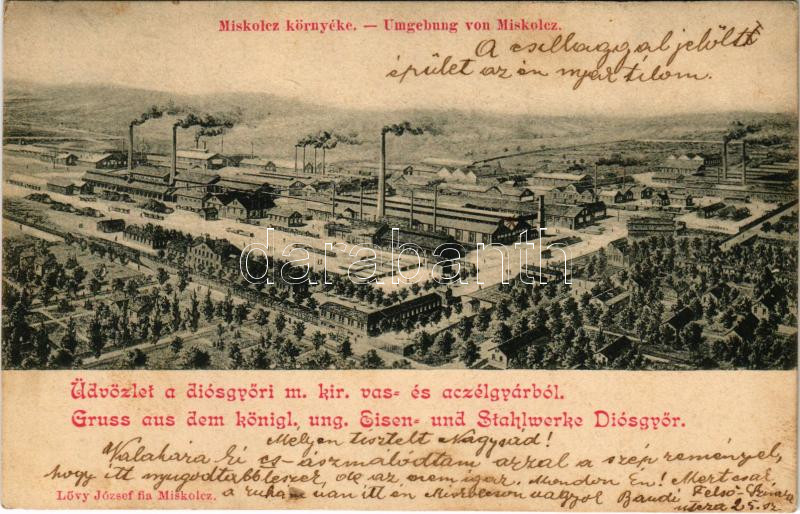 Miskolcz környéke. — Umgebung von Miskolcz.
A csillaggal jelölt
épület az én nyaralóm.
darabanth
Üdvözlet a diósgyőri m. kir. vas- és aczélgyárból.
Gruss aus dem königl. ung. Eisen- und Stahlwerke Diósgyőr.
Mélyen tisztelt Nagysád!
Valahára ki cs-ászmálódtam azzal a szép reménnyel,
hogy itt nyugodtabb leszek, de az nem igaz. Mondom Én! Mert csak
a ruhám van itt én Miskolcson vagyok Felső-
utcza 25. sz
Lövy József fia Miskolcz.